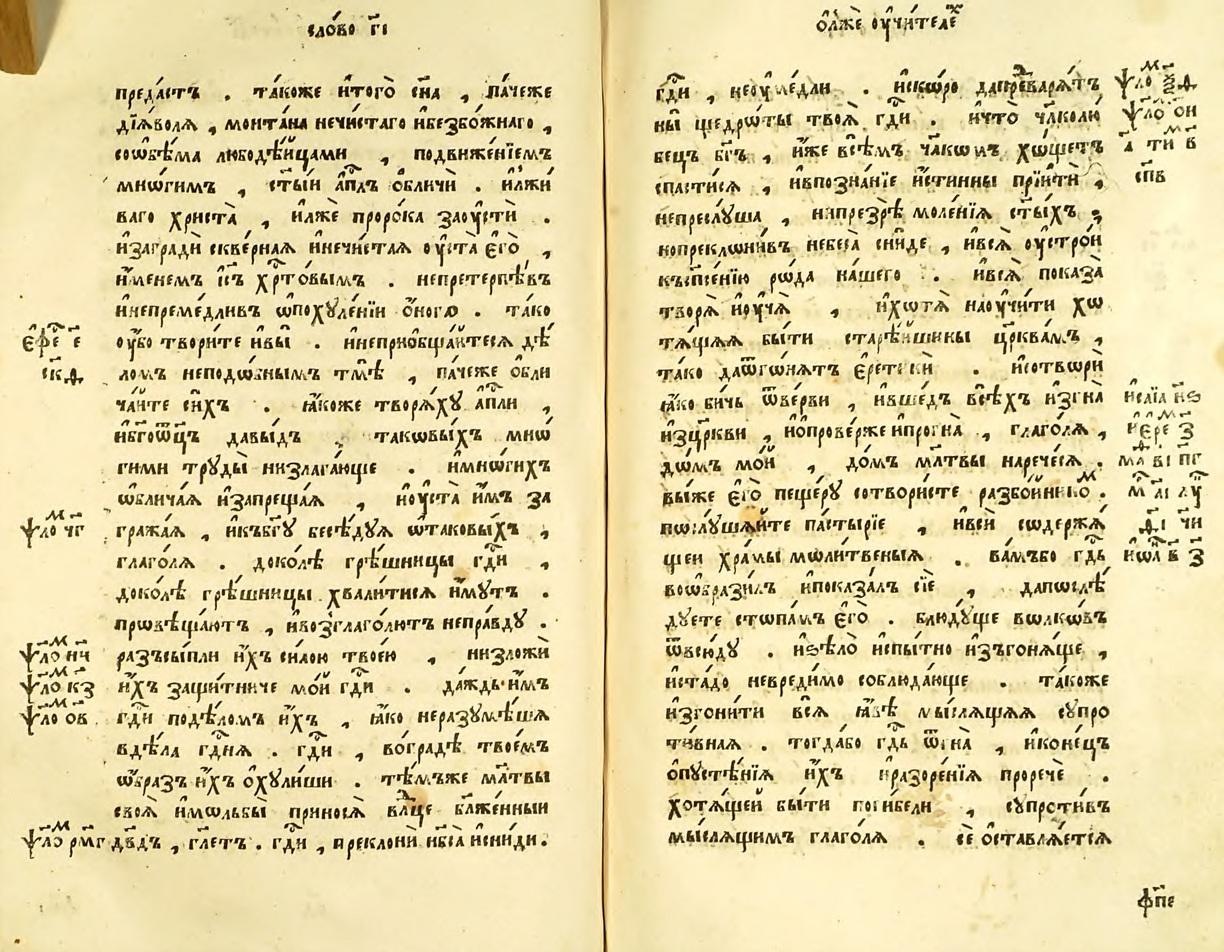 сло́во гі
преда́стъ . та́коже итого̀ сн҃а , па́чеже
дїа́вола , монта́на нечи́стаго ибезбо́жнаго ,
соѡбѣ́ма любодѣ́ицами , подвиже́нїемъ
мно́гимъ , ст҃ы́й ап҃лъ ѡбличѝ . илжи
ва́го христа̀ , илжѐ проро́ка заоустѝ .
изаградѝ скве́рная инечи́стая оуста̀ єго̀ ,
и҆́менемъ іс҃ъ хр҃то́вымъ . непретерпѣ́въ
инепреме́дливъ ѡпохуле́нїи ѻ҆́ного . та́ко
оу҆́бо твори́те ивы̀ . инеприѻбща́итеся дѣ
ло́мъ неподѡ́бнымъ тмѣ̀ , па́чеже ѻбли
ча́йте си́хъ . я҆́коже творя́ху ап҃ли ,
ибг҃оѿц҃ъ давы́дъ . таковы́хъ мнѡ
гими труды̀ низлага́юще . имнѡ́гихъ
ѡблича́я изапреща́я , иоуста̀ и҆́мъ за
гражая , икъбг҃у бесѣ́дуя ѡтаковы́хъ ,
глаго́ля . доко́лѣ грѣ́шницы гд҃и ,
доко́лѣ грѣ́шницы хвали́тися и҆́мутъ .
провѣща́ютъ , ивозглаго́лютъ непра́вду .
разъсы́пли и҆́хъ си́лою твое́ю , низложѝ
и҆́хъ защи́тниче мо́й гд҃и . да́ждь и҆́мъ
гд҃и подѣло́мъ и҆́хъ , я҆́ко неразумѣ́шя
вдѣ́ла гд҃ня . гд҃и , во́градѣ твое́мъ
ѡ҆́бразъ и҆́хъ ѻхули́ши . тѣ́мъже мл҃твы
своя̀ имѡльбы̀ принося̀ вл҃це бл҃же́нныи
дв҃дъ , гл҃етъ . гд҃и , преклонѝ нб҃са̀ исни́ди .
єфе є
ск҃д
ѱло чг
ѱло нч
ѱло кз
ѱло ѻв
ѱло рмг
ѻлжѐ оучи́телех
гд҃и , неоуме́дли . иско́ро дапредваря́тъ
ны̀ щедрѡ́ты твоя̀ гд҃и . ичто̀ чл҃колю
бецъ бг҃ъ , и҆́же всѣ́мъ чл҃кѡмъ хѡ́щетъ
спасти́ся , ивпозна́нїе и҆́стинны прїитѝ ,
непреслу́ша , нипрезрѣ̀ моле́нїя ст҃ы́хъ ,
нопреклони́въ небеса̀ сни́де , ився̀ оустро́и
къспсе́нїю ро́да на́шего . ився̀ показа̀
творя̀ иоучя̀ , ихотя̀ наоучи́ти хѡ
тя́щяя бы́ти старѣ́йшины цр҃ква́мъ ,
та́ко даѿгоня́тъ єретикѝ . исотворѝ
я҆́ко би́чь ѿве́рви , ивше́дъ всѣ́хъ изгна̀
изцр҃кви , ипрове́рже ипрогна̀ , глаго́ля ,
до́мъ мо́й , до́мъ мл҃твы наречеся .
вы́же єго̀ пеще́ру сотвори́сте разбо́йником .
послу́шяйте па́стырїе , ивсѝ содержа́
щеи хра́мы мѡли́твеныя . ва́мъбо гд҃ь
воѡбрази́лъ ипоказа́лъ сїѐ , дапослѣ́
дуете стопа́мъ єго̀ . блюду́ще вѡлкѡ́въ
ѿвсю́ду . иѕѣло̀ испы́тно изъгоня́ще ,
иста́до невреди́мо соблюда́юще . та́коже
изгони́ти вся̀ я҆́вѣ мы́слящяя супро
ти́вная . тогда́бо гд҃ь ѿгна̀ , иконе́цъ
ѻпустѣ́нїя и҆́хъ иразоре́нїя проречѐ .
хотя́щей бы́ти поги́бели , супроти́въ
мы́слящимъ глаго́ля . сѐ ѻставля́ется
ѱло ѻи
спв
исаія нѕ
иере з
мл ві пг
иѡа в з
фпе